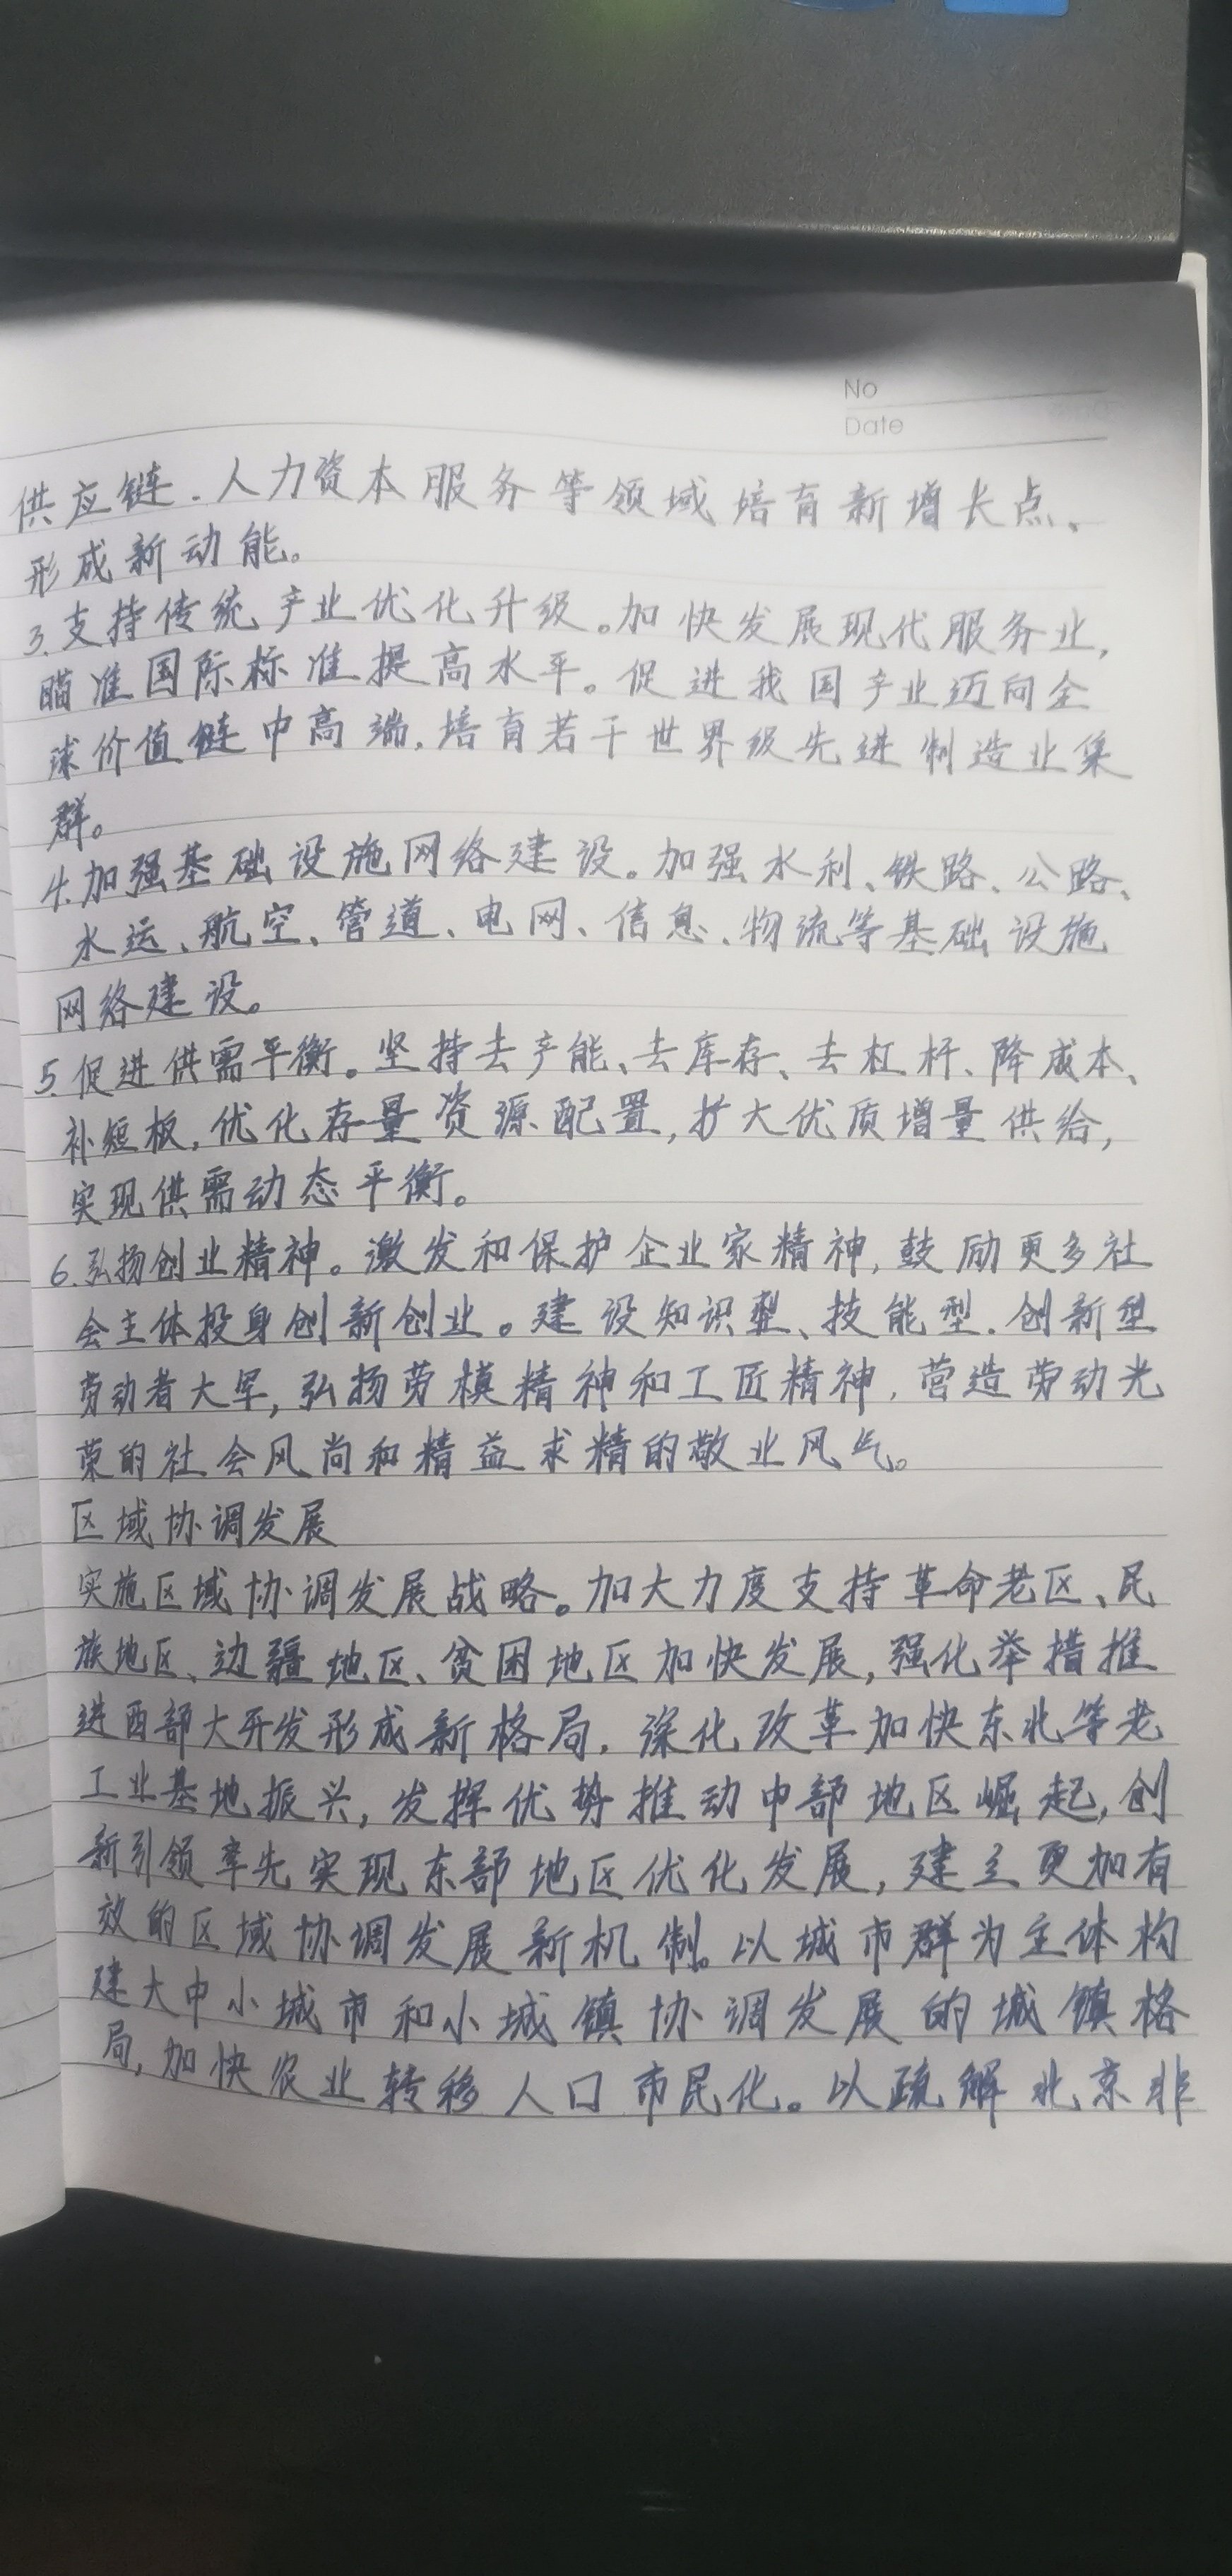 No
Date
供应链、人力资本服务等领域培育新增长点、
形成新动能。
3.支持传统产业优化升级。加快发展现代服务业,
瞄准国际标准提高水平。促进我国产业迈向全
球价值链中高端,培育若干世界级先进制造业集
群。
4.加强基础设施网络建设。加强水利、铁路、公路、
水运、航空、管道、电网、信息、物流等基础设施
网络建设。
5.促进供需平衡。坚持去产能、去库存、去杠杆、降成本、
补短板,优化存量资源配置,扩大优质增量供给,
实现供需动态平衡。
6.弘扬创业精神。激发和保护企业家精神,鼓励更多社
会主体投身创新创业。建设知识型、技能型、创新型
劳动者大军,弘扬劳模精神和工匠精神,营造劳动光
荣的社会风尚和精益求精的敬业风气。
区域协调发展
实施区域协调发展战略。加大力度支持革命老区、民
族地区、边疆地区、贫困地区加快发展,强化举措推
进西部大开发形成新格局,深化改革加快东北等老
工业基地振兴,发挥优势推动中部地区崛起,创
新引领率先实现东部地区优化发展,建立更加有
效的区域协调发展新机制。以城市群为主体构
建大中小城市和小城镇协调发展的城镇格
局,加快农业转移人口市民化。以疏解北京非